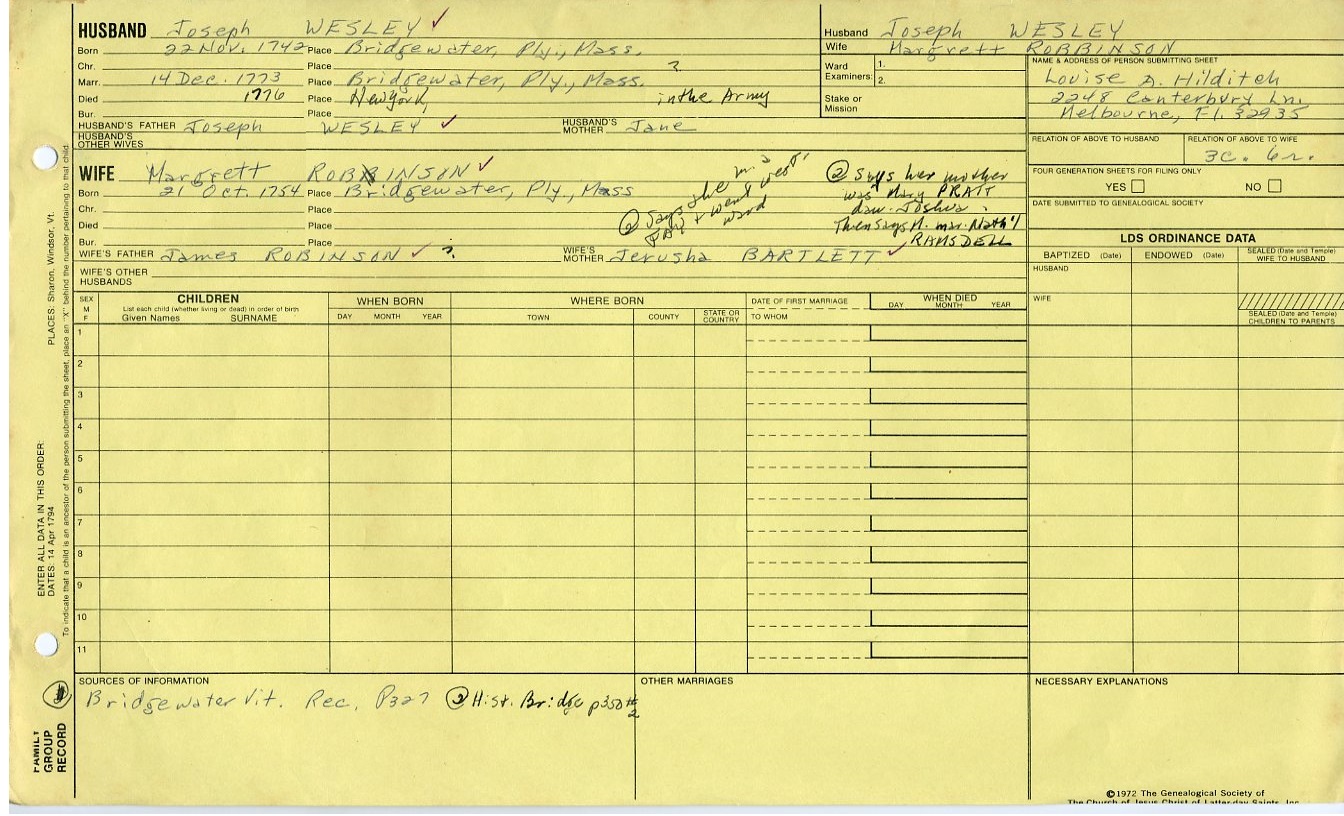 HUSBAND Joseph WESLEY ✓
Born 22 Nov. 1742 Place Bridgewater, Ply., Mass.
Chr. Place ?
Marr. 14 Dec. 1773 Place Bridgewater, Ply., Mass.
Died 1776 Place New York, in the Army
Bur. Place
HUSBAND'S FATHER Joseph WESLEY ✓ HUSBAND'S MOTHER Jane
HUSBAND'S OTHER WIVES
WIFE Margrett ROBBINSON ✓
Born 21 Oct. 1754 Place Bridgewater, Ply., Mass
Chr. Place
Died Place
Bur. Place
② Says she m. 2
& went west
ward
② Says her mother
was Mary PRATT
dau. Joshua.
Then says M. mar. Nath'l
RAMSDELL
WIFE'S FATHER James ROBINSON ✓ ? WIFE'S MOTHER Jerusha BARTLETT ✓
WIFE'S OTHER HUSBANDS
Husband Joseph WESLEY
Wife Margrett ROBBINSON
Ward 1.
Examiners: 2.
Stake or
Mission
NAME & ADDRESS OF PERSON SUBMITTING SHEET
Louise A. Hilditch
2248 Canterbury Ln.
Melbourne, Fl. 32935
RELATION OF ABOVE TO HUSBAND RELATION OF ABOVE TO WIFE
3c. 6r.
FOUR GENERATION SHEETS FOR FILING ONLY
YES NO
DATE SUBMITTED TO GENEALOGICAL SOCIETY
LDS ORDINANCE DATA
BAPTIZED (Date) ENDOWED (Date) SEALED (Date and Temple) WIFE TO HUSBAND
HUSBAND
WIFE
SEALED (Date and Temple) CHILDREN TO PARENTS
SEX M F
CHILDREN
List each child (whether living or dead) in order of birth
Given Names SURNAME
WHEN BORN
DAY MONTH YEAR
WHERE BORN
TOWN COUNTY STATE OR COUNTRY
DATE OF FIRST MARRIAGE
TO WHOM
WHEN DIED
DAY MONTH YEAR
1
2
3
4
5
6
7
8
9
10
11
SOURCES OF INFORMATION
Bridgewater Vit. Rec, P327 ② Hist. Bridge p350 #2
OTHER MARRIAGES
NECESSARY EXPLANATIONS
PLACES: Sharon, Windsor, Vt.
ENTER ALL DATA IN THIS ORDER:
DATES: 14 Apr 1794
To indicate that a child is an ancestor of the person submitting the sheet, place an "X" behind the number pertaining to that child.
FAMILY
GROUP
RECORD
©1972 The Genealogical Society of
The Church of Jesus Christ of Latter-day Saints, Inc.